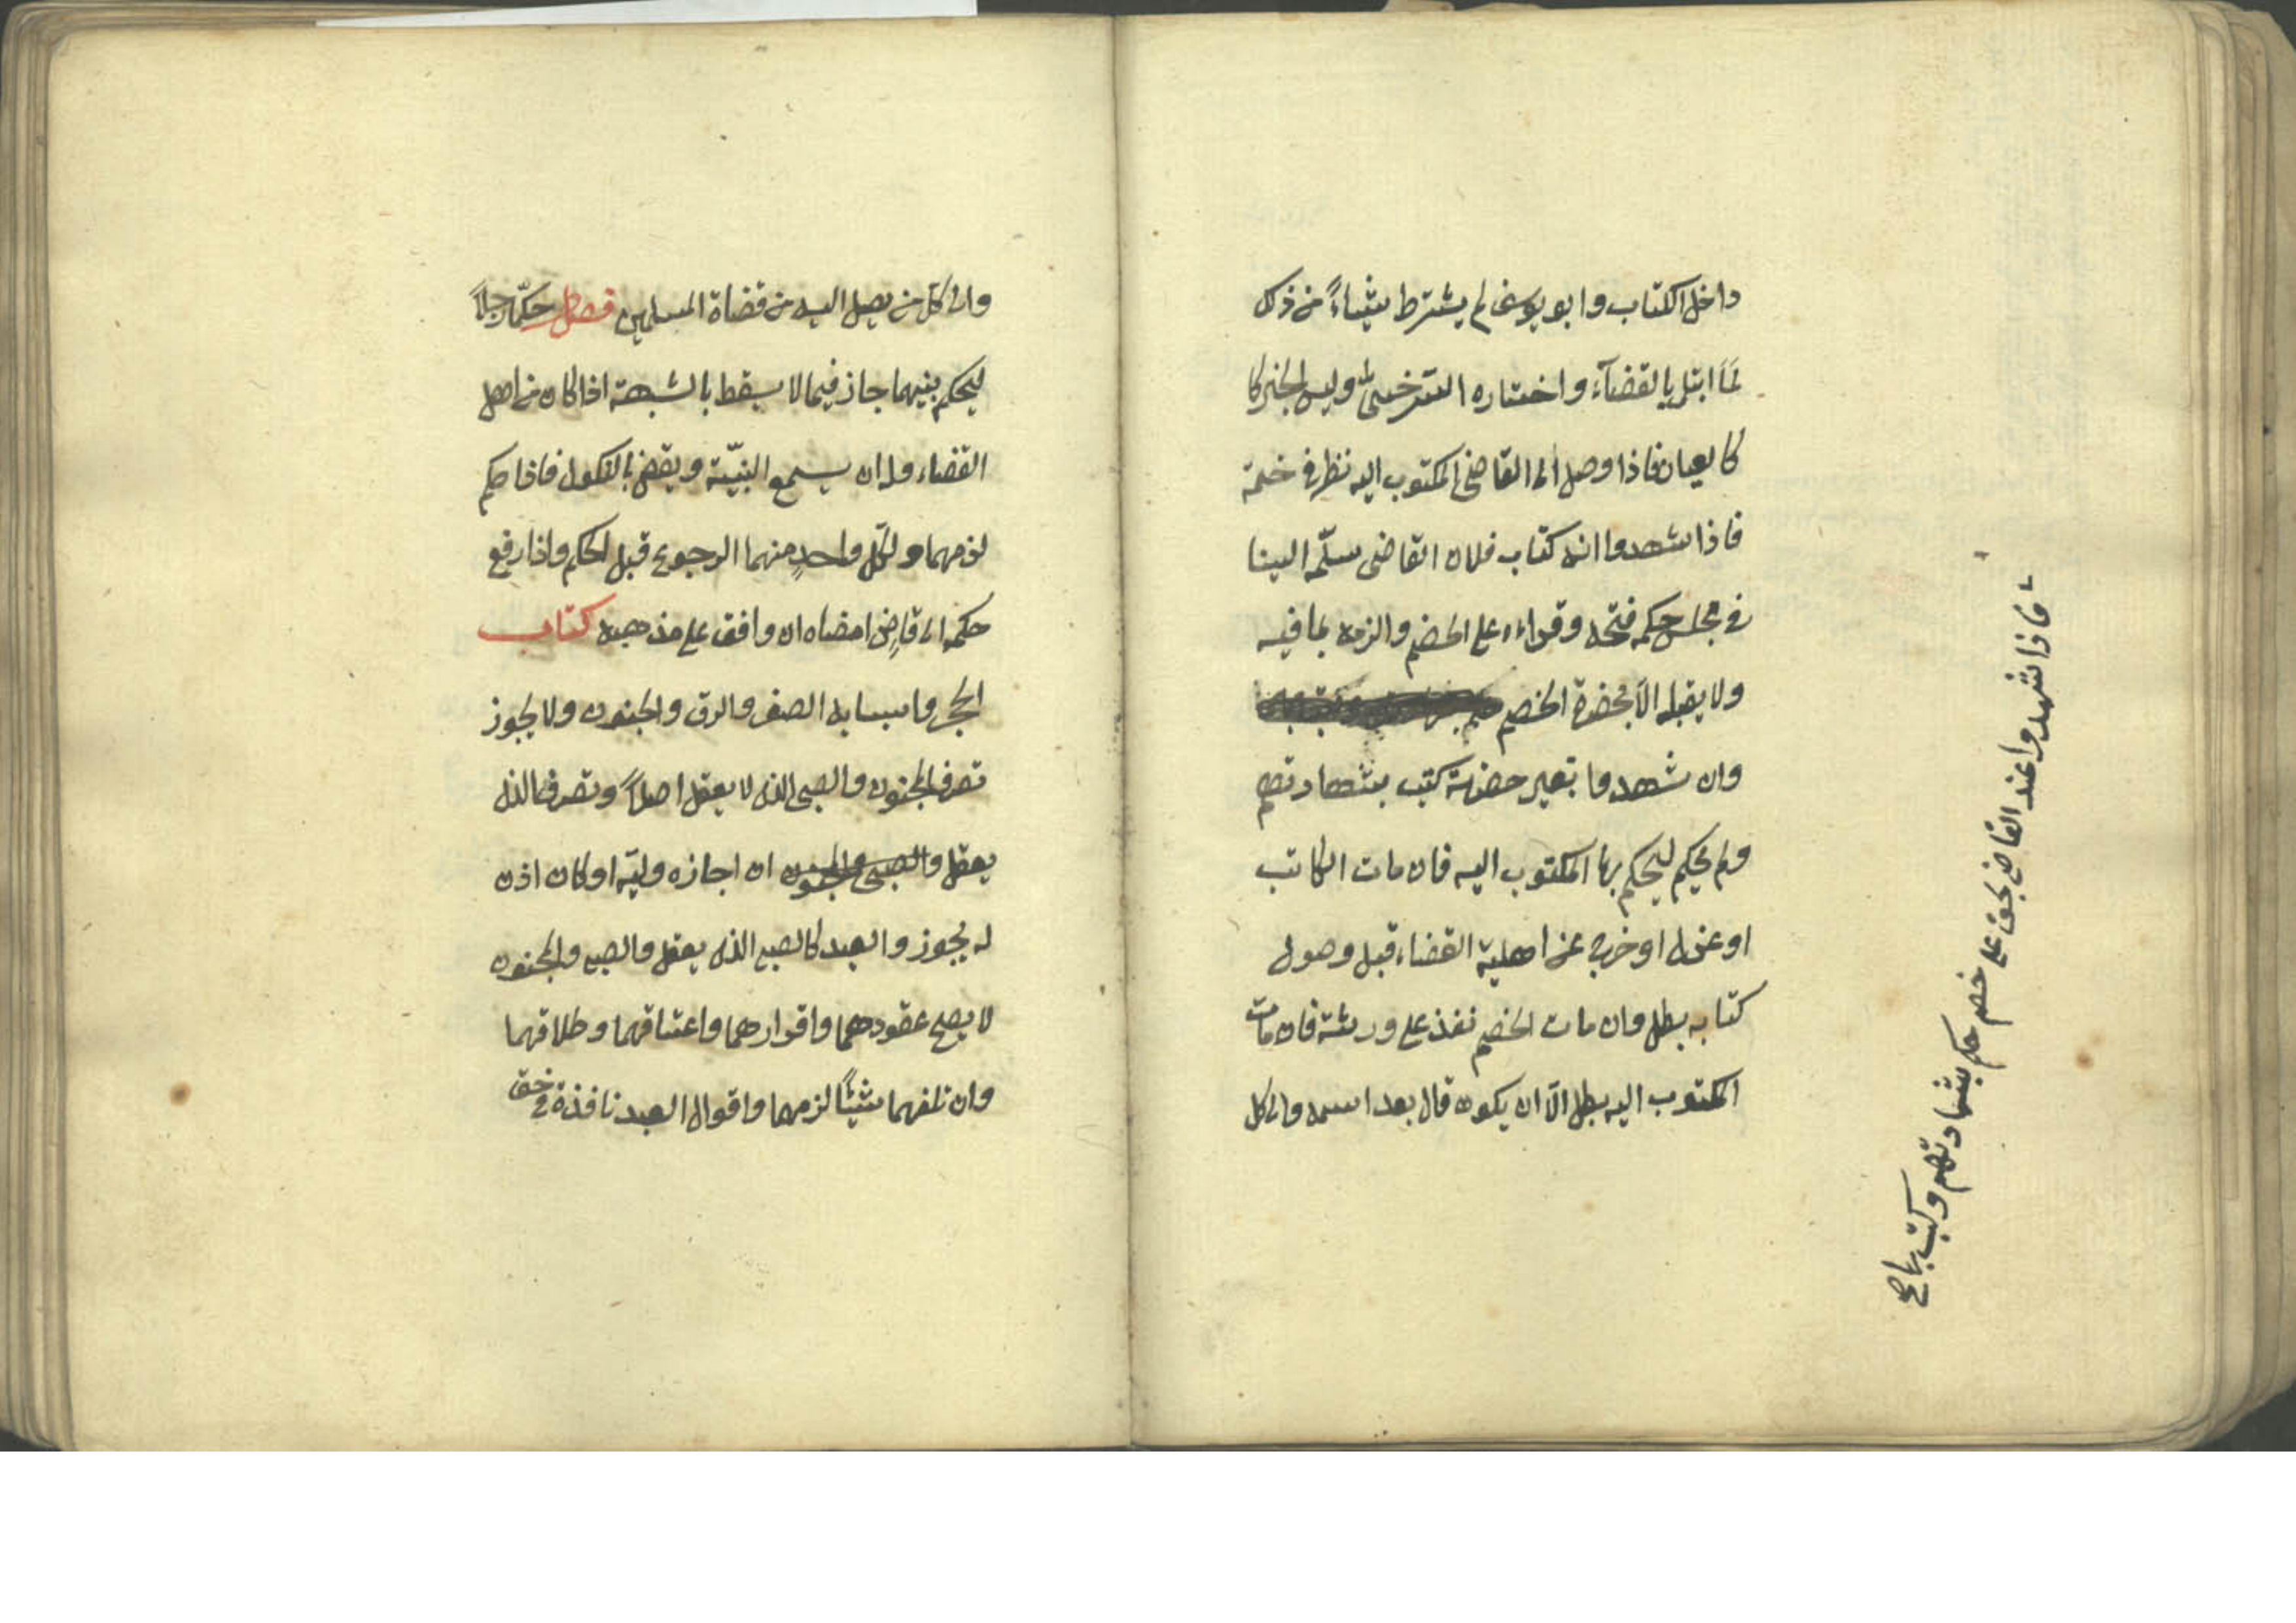 داخل الكتاب وابو يوسف لم يشترط شيئاءً من ذلك
لمّا ابتلى بالقضآء واختاره السرخسى وليس الخبر كا
كالعيان فاذا وصل الى القاضى المكتوب اليه نظر فى ختمه
فاذا شهدوا انه كتاب فلان القاضى سلّمه الينا
فى مجلس حكمه فتحه وقراءه على الخصم والزمه بما فيه
ولا يقبله الّا بحضرة الخصم
وان شهدوا بغير حضرته كتب بشهادتهم
ولم يحكم ليحكم بها المكتوب اليه فان مات الكاتب
او عزل او خرج عن اهلية القضاء قبل وصول
كتابه بطل وان مات الخصم نفذ على ورثته فان مات
المكتوب اليه بطل الّا ان يكون قال بعد اسمه والى كل
فاذا شهدوا عند القاضى بحق على خصم حكم بشهادتهم وكتب بها صح
والى كلّ من يصل اليه من قضاة المسلمين فصل حكّما رجلاً
ليحكم بينهما جاز فيما لا يسقط بالشبهة اذا كان من اهل
القضاء وله ان يسمع البيّنة ويقضى بالنكول فاذا حكم
لزمهما ولكلّ واحدٍ منهما الرجوع قبل الحكم واذا رفع
حكمه الى قاضٍ امضاه ان وافق على مذهبه كتاب
الحجر واسبابه الصغر والرق والجنون ولا يجوز
تصرف المجنون والصبى الذى لا يعقل اصلاً وتصرف الذى
يعقل والصبى والمجنون ان اجازه وليّه او كان اذن
له يجوز والعبد كالصبى الذى يعقل والصبى والمجنون
لا يصح عقودهما واقرارهما واعتاقهما وطلاقهما
وان تلفهما شيئًا لزمهما واقوال العبد نافذة فى حق